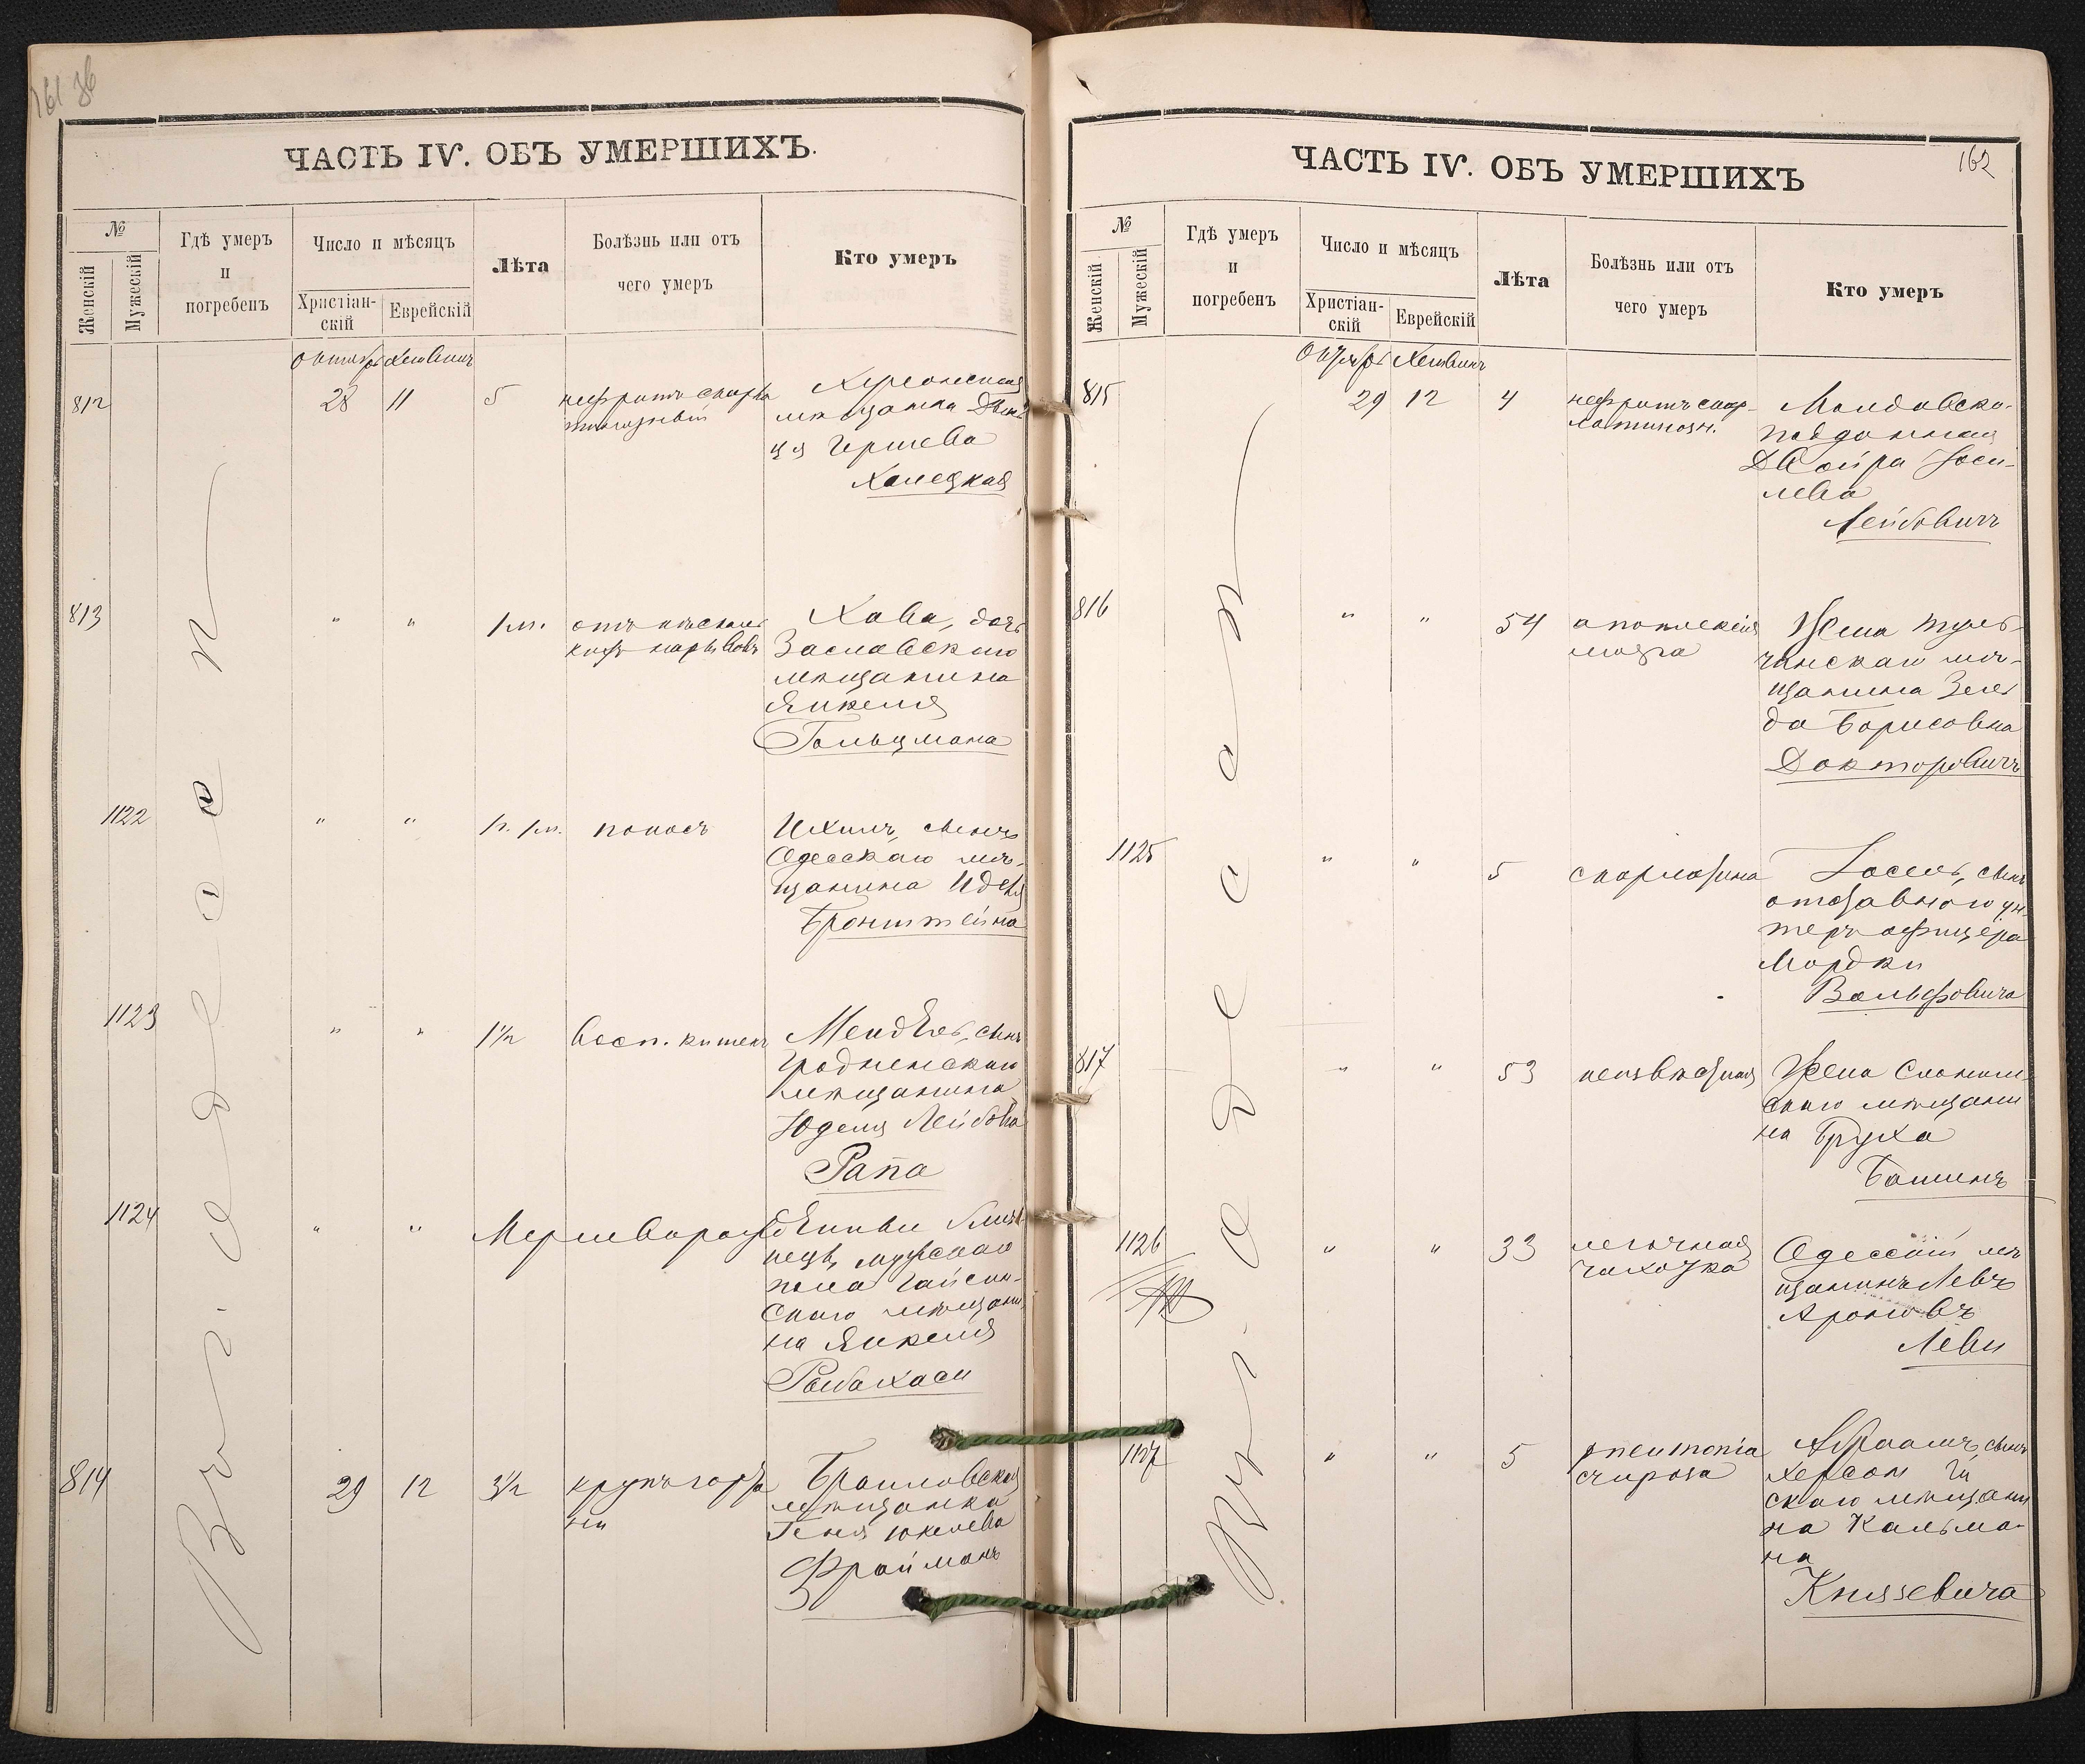 161
ЧАСТЬ IV. ОБЪ УМЕРШИХЪ.
№
Женскій
Мужескій
Гдѣ умеръ
и
погребенъ
Число и мѣсяцъ
Христіан-
скій
Еврейскій
Лѣта
Болѣзнь или отъ
чего умеръ
Кто умеръ
Въ г. Одессѣ
812
28 11
5
Херсонская
мѣщанка
Гершева
Халецкая
813
" "
1 м.
Хава, дочь
Заславскаго
мѣщанина
Янкеля
Гольцмана
1122
" "
1 г. 1 м.
поносъ
Ихилъ, сынъ
Одесскаго мѣ-
щанина Иделя
Бронштейна
1123
" "
1 1/2
восп. кишекъ
Мендель, сынъ
Гродненскаго
мѣщанина
Юделя Лейбова
Рапа
1124
" "
Мертворожденный близ-
нецъ, мужскаго
пола Гайсин-
скаго мѣщани-
на Янкеля
814
29 12
3 1/2
крупъ горта
ни
Браиловская
мѣщанка
Геня
Фрайманъ
162
ЧАСТЬ IV. ОБЪ УМЕРШИХЪ
№
Женскій
Мужескій
Гдѣ умеръ
и
погребенъ
Число и мѣсяцъ
Христіан-
скій
Еврейскій
Лѣта
Болѣзнь или отъ
чего умеръ
Кто умеръ
Въ г. Одессѣ
815
29 12
4
нефритъ скар-
латинозн.
Молдавско-
подданная
Двойра Іоси-
лева
Лейбовичъ
816
" "
54
апоплексія
мозга
Жена Туль-
чинскаго мѣ-
щанина Зель
да Борисовна
Докторовичъ
1125
" "
5
скарлатина
Іосель, сынъ
отставного ун-
теръ офицера
Мордки
Вольфовича
817
" "
53
неизвѣстная
Жена Слоним-
скаго мѣщани
на Бруха
Башинъ
1126
" "
33
легочная
чахотка
Одесскій мѣ
щанинъ Левъ
Ароновъ
Леви
1127
" "
5
pneumonia
cruposa
Абраамъ, сынъ
Херсон
скаго мѣщани
на Кальма-
на